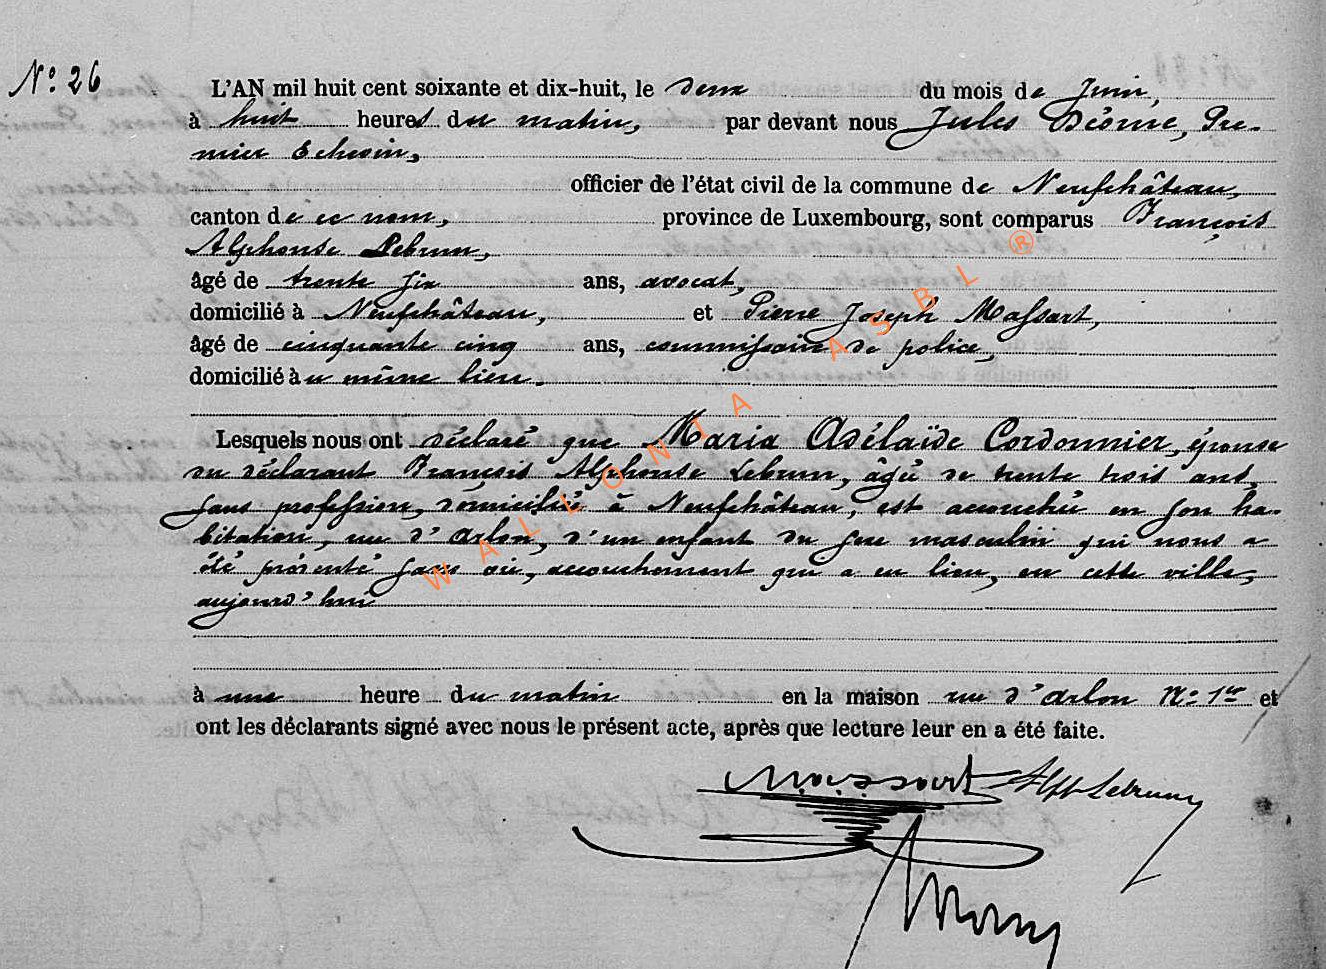 N° 26
L'AN mil huit cent soixante et dix-huit, le deux du mois de Juin,
à huit heures du matin, par devant nous Jules Dième, Pre-
mier Echevin,
officier de l'état civil de la commune de Neufchâteau,
canton de ce nom, province de Luxembourg, sont comparus François
Alphonse Lebrun,
âgé de trente six ans, avocat,
domicilié à Neufchâteau, et Pierre Joseph Massart,
âgé de cinquante cinq ans, commissaire de police,
domicilié au même lieu.
Lesquels nous ont déclaré que Maria Adélaïde Cordonnier, épouse
du déclarant François Alphonse Lebrun, âgée de trente trois ans,
sans profession, domiciliée à Neufchâteau, est accouchée en son ha-
bitation, rue d'Arlon, d'un enfant du sexe masculin qui nous a
été présenté sans vie, accouchement qui a eu lieu, en cette ville,
aujourd'hui
à une heure du matin en la maison rue d'Arlon N° 1er et
ont les déclarants signé avec nous le présent acte, après que lecture leur en a été faite.
Massart Alph Lebrun
WALLONIA ASBL ®